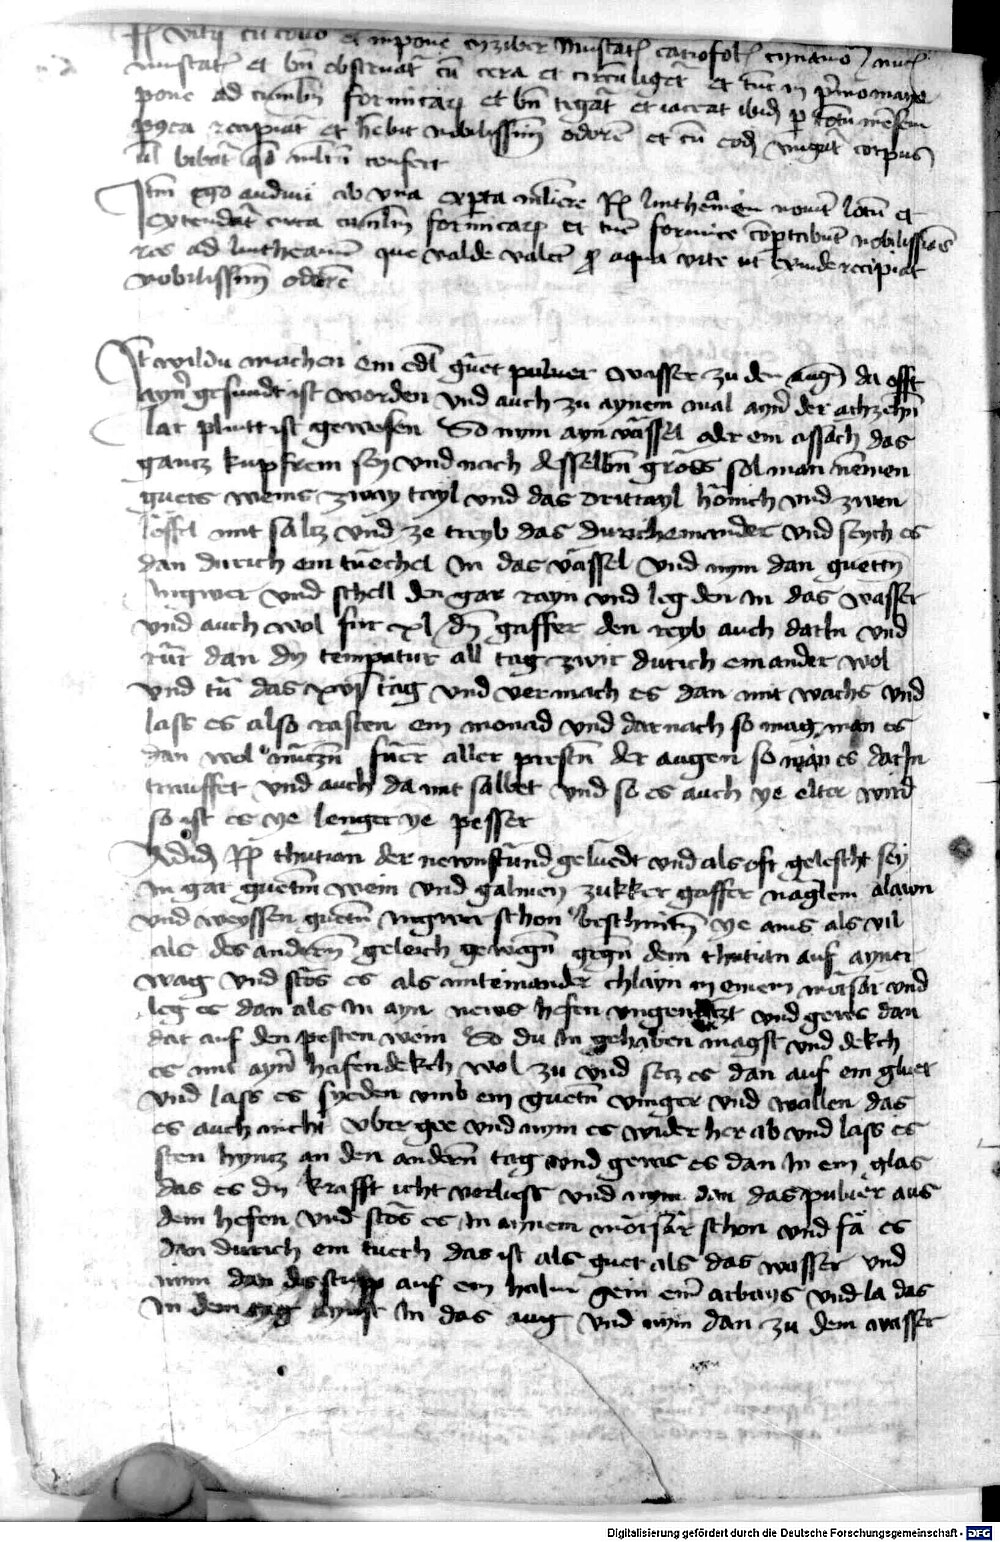 vitri cu couo et inpone cynziber Muscat cariofol cynamo nuc
muscat et bn obstruat cu cera et circuligat et tuc in pmo mane
pone ad cumlm formicar et bn tegat et iaceat ibid p totu mesem
postea recipiat et hebit nobilissim odore et cu eod vngat corpus
ul bibat qd multu confert
Itm ego audiui ab vna expta muliere Rp lintheamen nouit lotu et
extendat circa cumlm formicar et tuc formice coportabunt nobilissias
res ad lintheamen que valde valet p aqua vite ut exinde recipiat
nobilissim odore
It wildu machen ein edl guet puluer wasser zu den augn da offt
ayn gesundt ist worden vnd auch zu aynem mal ayn der achzehn
Iar plintt ist gewesen So nym ayn vassel oder ein assach das
gancz kupfrein sey vnd nach desselbn gross sol man nemen
guets weins zway tayl vnd das drittayl honich vnd zwen
loffel mit saltz vnd ze treyb das duricheinander vnd seych es
dan durich ein tuechel In das vassel vnd nym dan guettn
Ingwer vnd schell den gar rayn vnd leg den In das wasser
vnd auch wol fur xl dn gaffer den reyb auch darIn vnd
rur dan dy tempatur all tag zwir durich einander wol
vnd tu das xvj tag vnd vermach es dan mit wachs vnd
lass es also rasten ein monad vnd darnach so mag man es
dan wol nuczn fuer aller prestn der augen so man es darIn
trauffet vnd auch da mit salbet vnd so es auch ye elter wird
so ist es ye lenger ye pesser
Rp thutian der newnstund geluedt vnd als oft gelescht sey
In gar guetm wein vnd galmey zukker gaffer naglein alawn
vnd weyssen guetn Ingwer schon beschnittn ye ains als vil
als des andern geleich gewegn gegn dem thutian auf ayner
wag vnd stos es als miteinander chlayn in einem morsar vnd
leg es dan als In ayn news hefen vngenutzt vnd gews dan
dar auf den pesten wein So du In gehaben magst vnd dekch
es mit ayn hafendekch wol zu vnd secz es dan auf ein gluet
vnd lass es syeden vmb ein guetn vinger vnd wallen das
es auch nicht vber gee vnd nym es wider her ab vnd lass es
sten hyncz an den andern tag vnd gews es dan In ein glas
das es dy krafft icht verlies vnd nym dan das puluer aus
dem hefen vnd stos es In aynem morsar schon vnd fa es
dan durich ein tuech das ist als guet als das wasser vnd
nym dan des stupp auf ein halm gein ein arbays vnd la das
In dem tag aynst In das aug vnd nym dan zu dem wasser
Digitalisierung gefördert durch die Deutsche Forschungsgemeinschaft - DFG